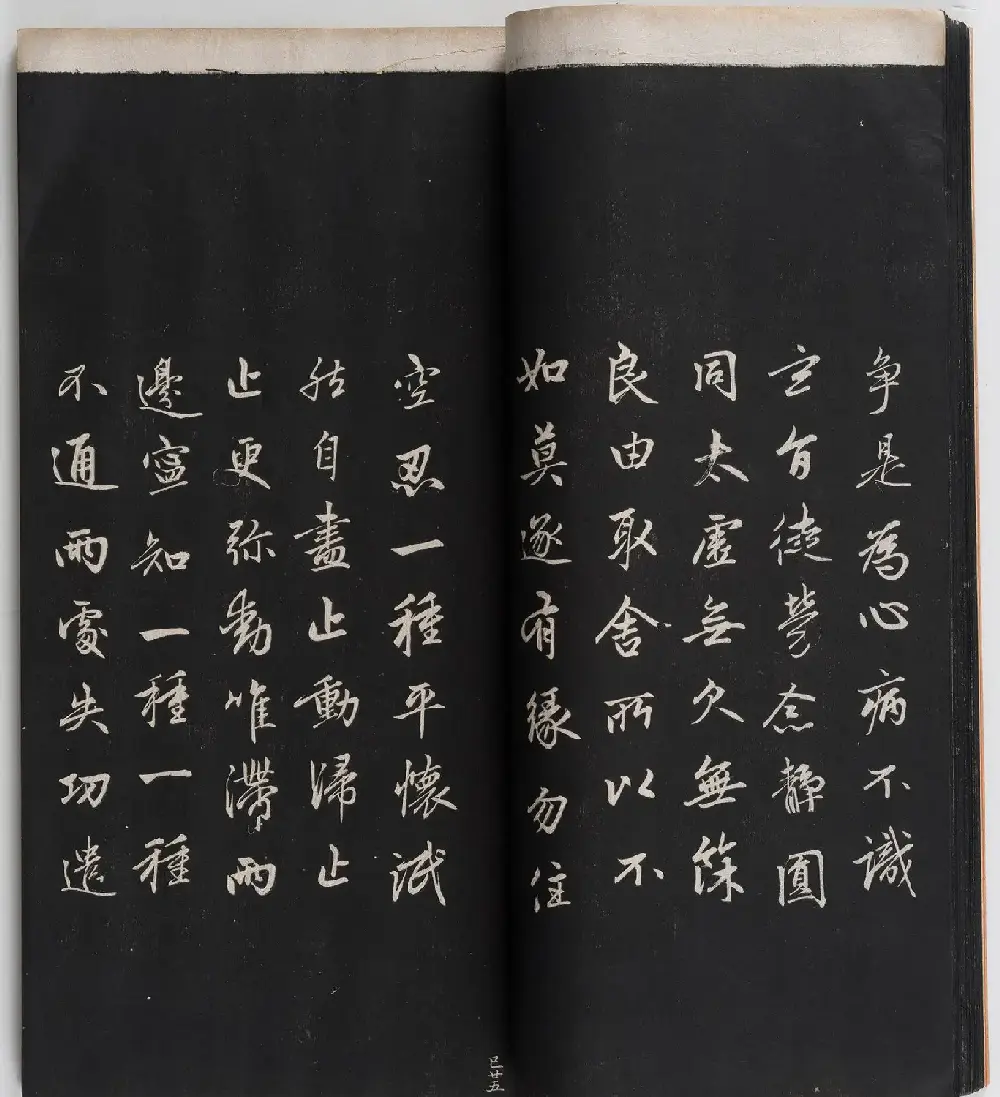 争是為心病不識
玄旨徒勞念靜圓
同太虛無欠無餘
良由取舍所以不
如莫逐有緣勿住
空忍一種平懷泯
然自盡止動歸止
止更弥動唯滯兩
邊寧知一種一種
不通兩處失功遣
已廿五